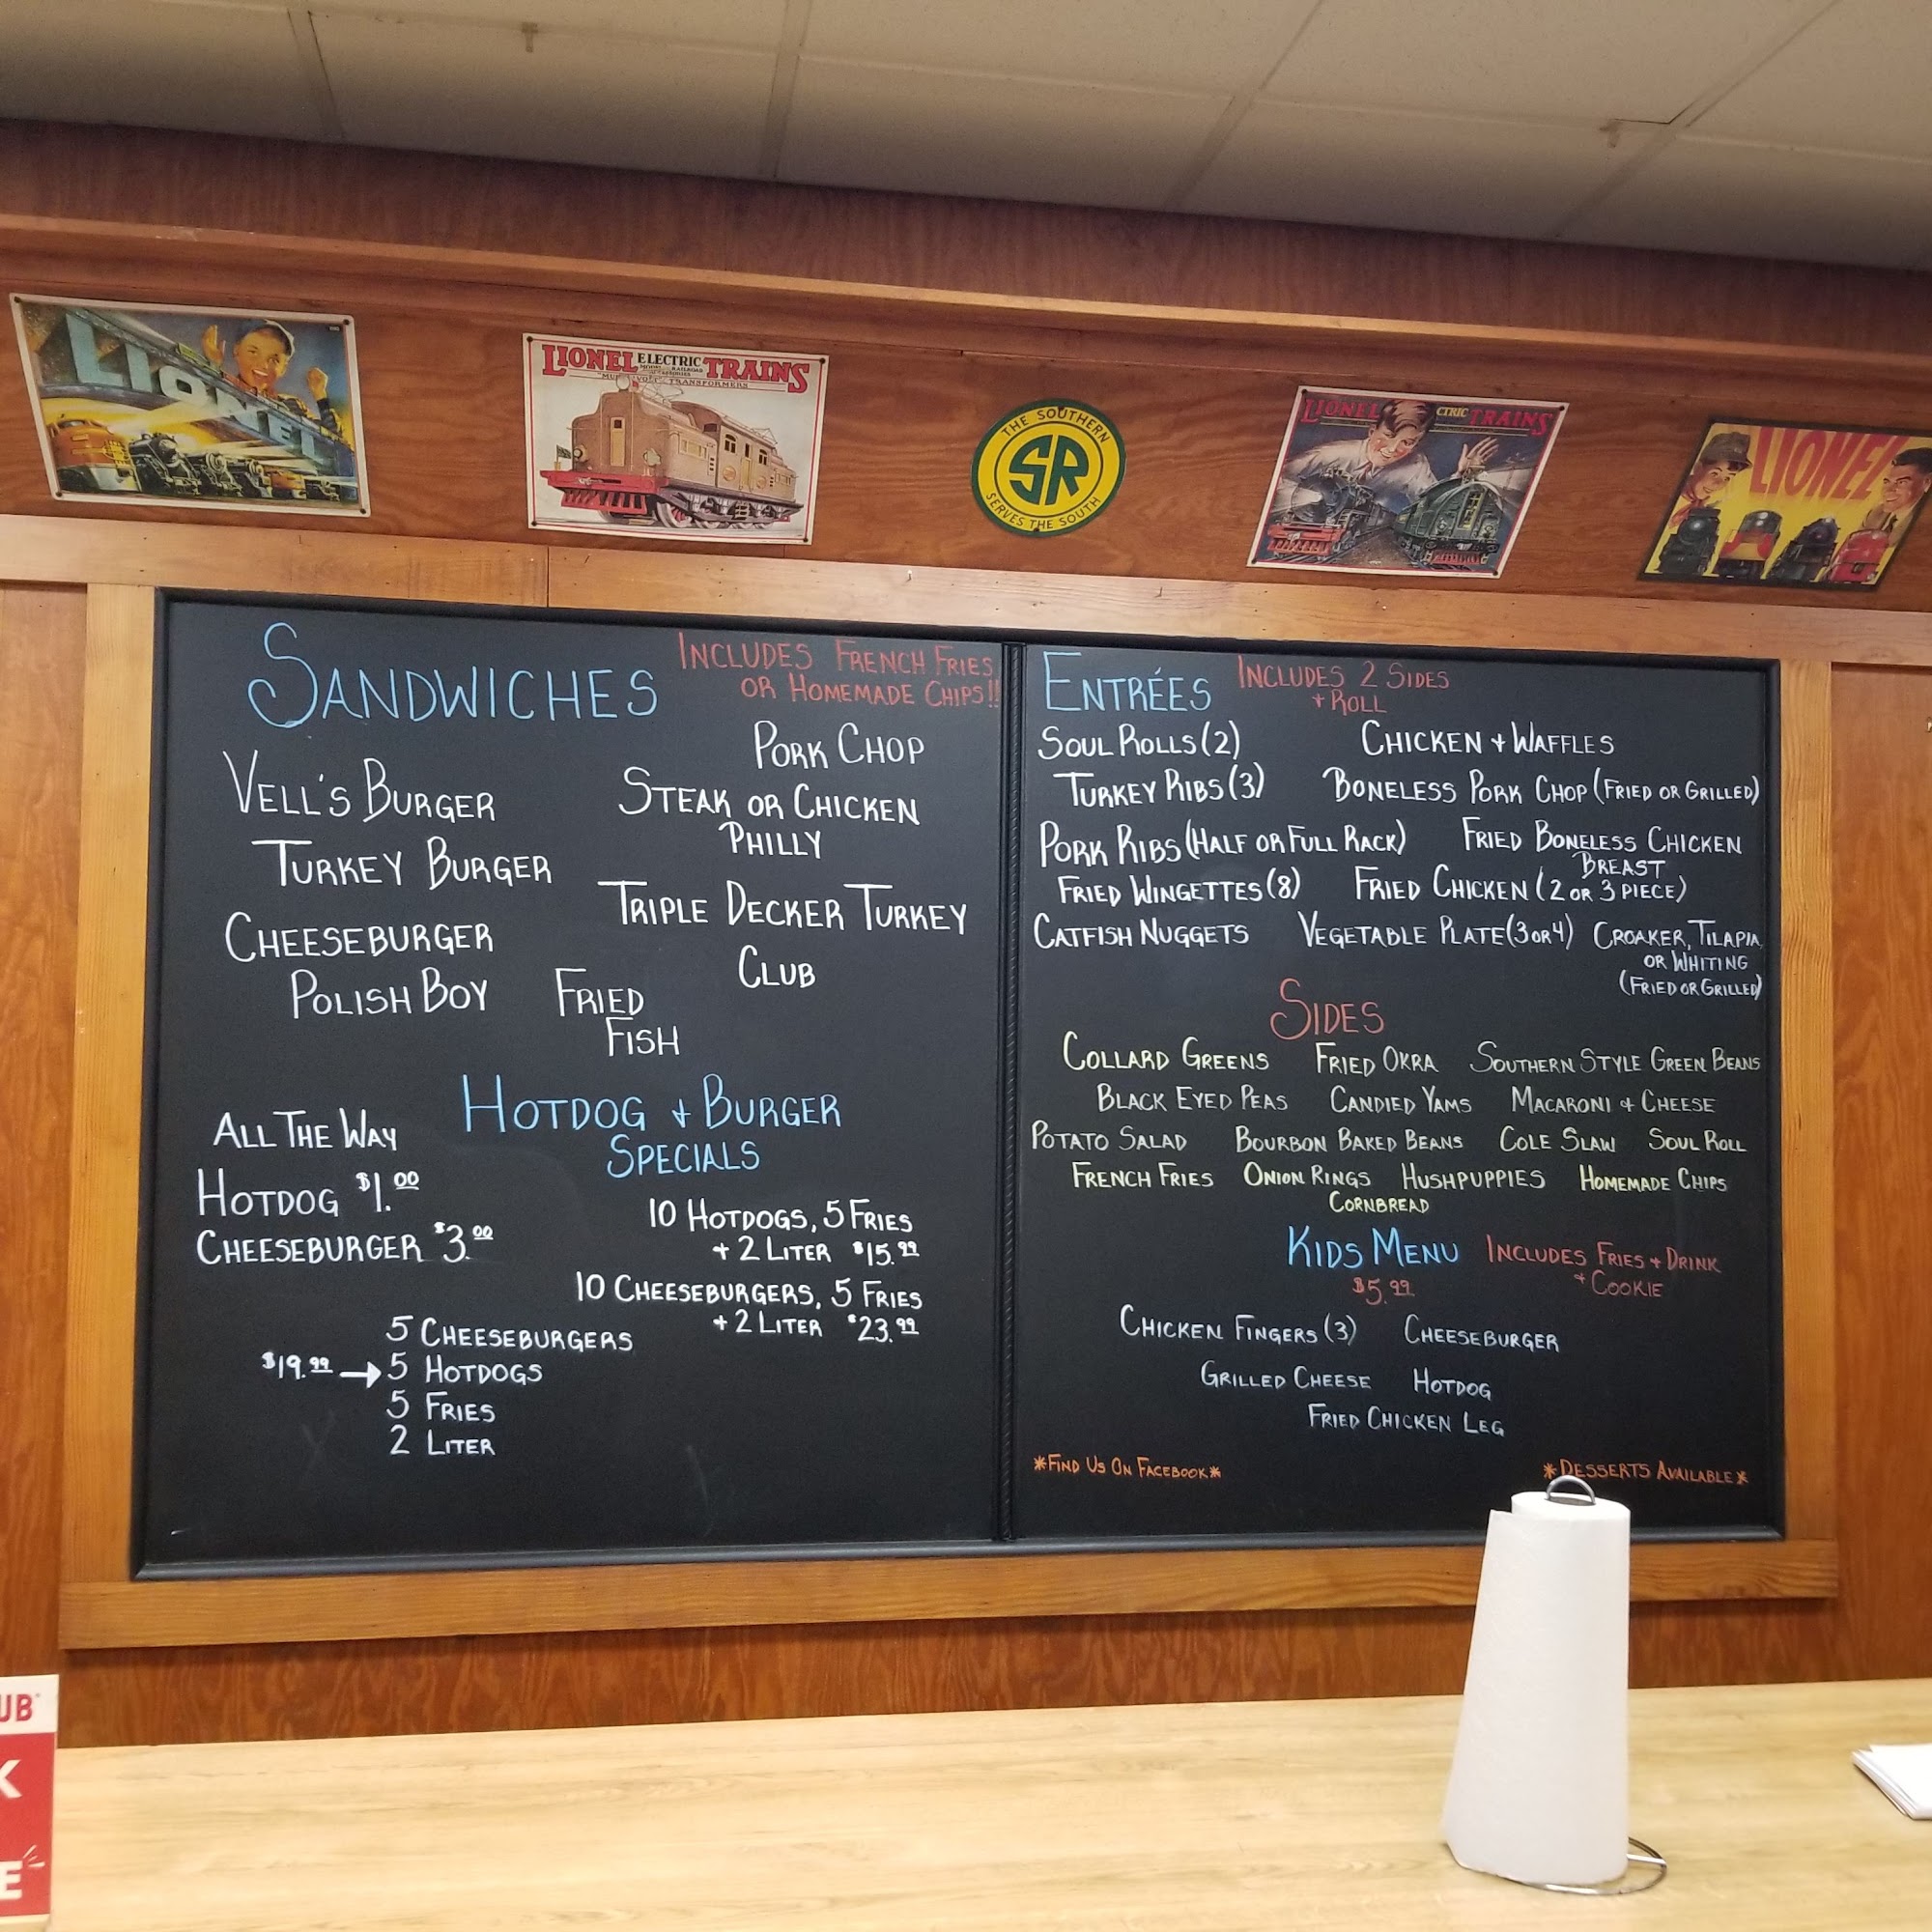 LIONEL
LIONEL ELECTRIC TRAINS
MODEL RAILROAD
ACCESSORIES
TRANSFORMERS
THE SOUTHERN
SR
SERVES THE SOUTH
LIONEL CTRIC TRAINS
LIONEL
SANDWICHES
INCLUDES FRENCH FRIES
OR HOMEMADE CHIPS!!
PORK CHOP
VELL'S BURGER
STEAK OR CHICKEN
PHILLY
TURKEY BURGER
TRIPLE DECKER TURKEY
CLUB
CHEESEBURGER
POLISH BOY
FRIED
FISH
HOTDOG + BURGER
SPECIALS
ALL THE WAY
HOTDOG $1.00
CHEESEBURGER $3.00
10 HOTDOGS, 5 FRIES
+ 2 LITER $15.99
10 CHEESEBURGERS, 5 FRIES
+ 2 LITER $23.99
5 CHEESEBURGERS
$19.99 → 5 HOTDOGS
5 FRIES
2 LITER
ENTRÉES
INCLUDES 2 SIDES
+ ROLL
SOUL ROLLS (2) CHICKEN + WAFFLES
TURKEY RIBS (3) BONELESS PORK CHOP (FRIED OR GRILLED)
PORK RIBS (HALF OR FULL RACK) FRIED BONELESS CHICKEN
BREAST
FRIED WINGETTES (8) FRIED CHICKEN (2 OR 3 PIECE)
CATFISH NUGGETS VEGETABLE PLATE (3 OR 4) CROAKER, TILAPIA,
OR WHITING
(FRIED OR GRILLED)
SIDES
COLLARD GREENS FRIED OKRA SOUTHERN STYLE GREEN BEANS
BLACK EYED PEAS CANDIED YAMS MACARONI + CHEESE
POTATO SALAD BOURBON BAKED BEANS COLE SLAW SOUL ROLL
FRENCH FRIES ONION RINGS HUSHPUPPIES HOMEMADE CHIPS
CORNBREAD
KIDS MENU INCLUDES FRIES + DRINK
$5.99 + COOKIE
CHICKEN FINGERS (3) CHEESEBURGER
GRILLED CHEESE HOTDOG
FRIED CHICKEN LEG
*FIND US ON FACEBOOK* *DESSERTS AVAILABLE*
UB
K
E